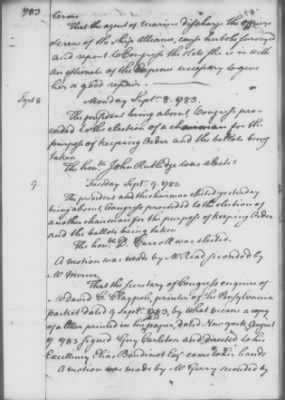 1783
crew.
That the agent of marine discharge the
crew of the Ship Alliance, cause her to be surveyed
and report to Congress the state she is in with
an estimate of the Expence necessary to give
her a good repair.
Sept. 8
Monday Sept. 8. 1783.
The president being absent, Congress pro-
ceeded to the election of a chairman for the
purpose of keeping Order and the ballots being
taken
The honble. John Rutledge was elected
9.
Tuesday Sept. 9. 1783.
The president and the chairman elected yesterday
being absent, Congress proceeded to the election of
another chairman for the purpose of keeping Order
and the ballots being taken
The honble. D. Carroll was elected.
A motion was made by Mr. Read seconded by
Mr. Mercer,
That the secretary of Congress enquire of
Mr. David C. Claypole, printer of the Pennsylvania
packet dated 9 Sept. 1783, by what means a copy
of a letter printed in his paper, dated New york, August
17 1783 signed Guy Carleton and directed to his
Excellency Elias Boudinot Esqr. came to his hands
A motion was made by Mr. Gerry seconded by